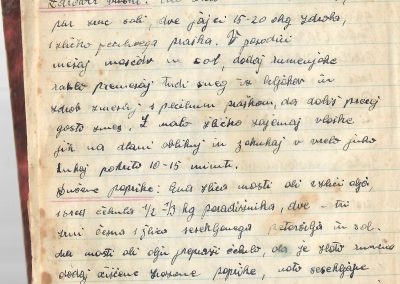 pur zmc soli, dve jajci 15-20 dkg zdroba,
1 žličko pecilnega praška. V posodici
mešaj maslo in sol, dodaj rumenjake
rahlo premešaj tudi sneg iz beljakov in
zdrob zmešaj s pecilnim praškom, da dobiš precej
gosto zmes. Z malo žličko zajemaj vlivke
jih na dlani oblikuj in zakuhaj v vrelo juho
kuhaj pokrito 10-15 minut.
Dušene paprike: Ena žlica masti ali 2 žlici olja,
1 srednja čebula 1/2 - 3/4 kg paradižnika, dve - tri
zrna česna 1 žlica sesekljanega peteršilja in sol.
Na masti ali olju prepraži čebulo, da je zlato rumena
dodaj očiščene zrezane paprike, nato sesekljane